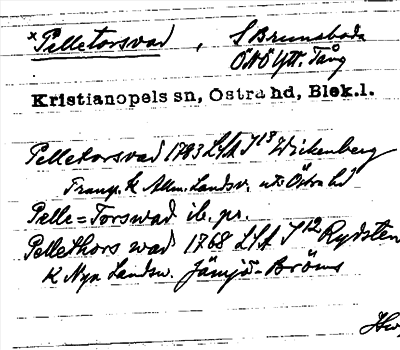 × Pelletorsvad, S Brunsboda
ÖNÖ Ytt. Tång
Kristianopels sn, Östra hd, Blek.l.
Pelletorsvad 1793 LSA J¹³ Wickenberg
Transp. K Allm. Landsv. uti Östra hd
Pelle=Torswad ib. pr.
Pellethors wad 1768 LSA J¹² Rydsten
K Nya Landsv. Jämjö-Bröms